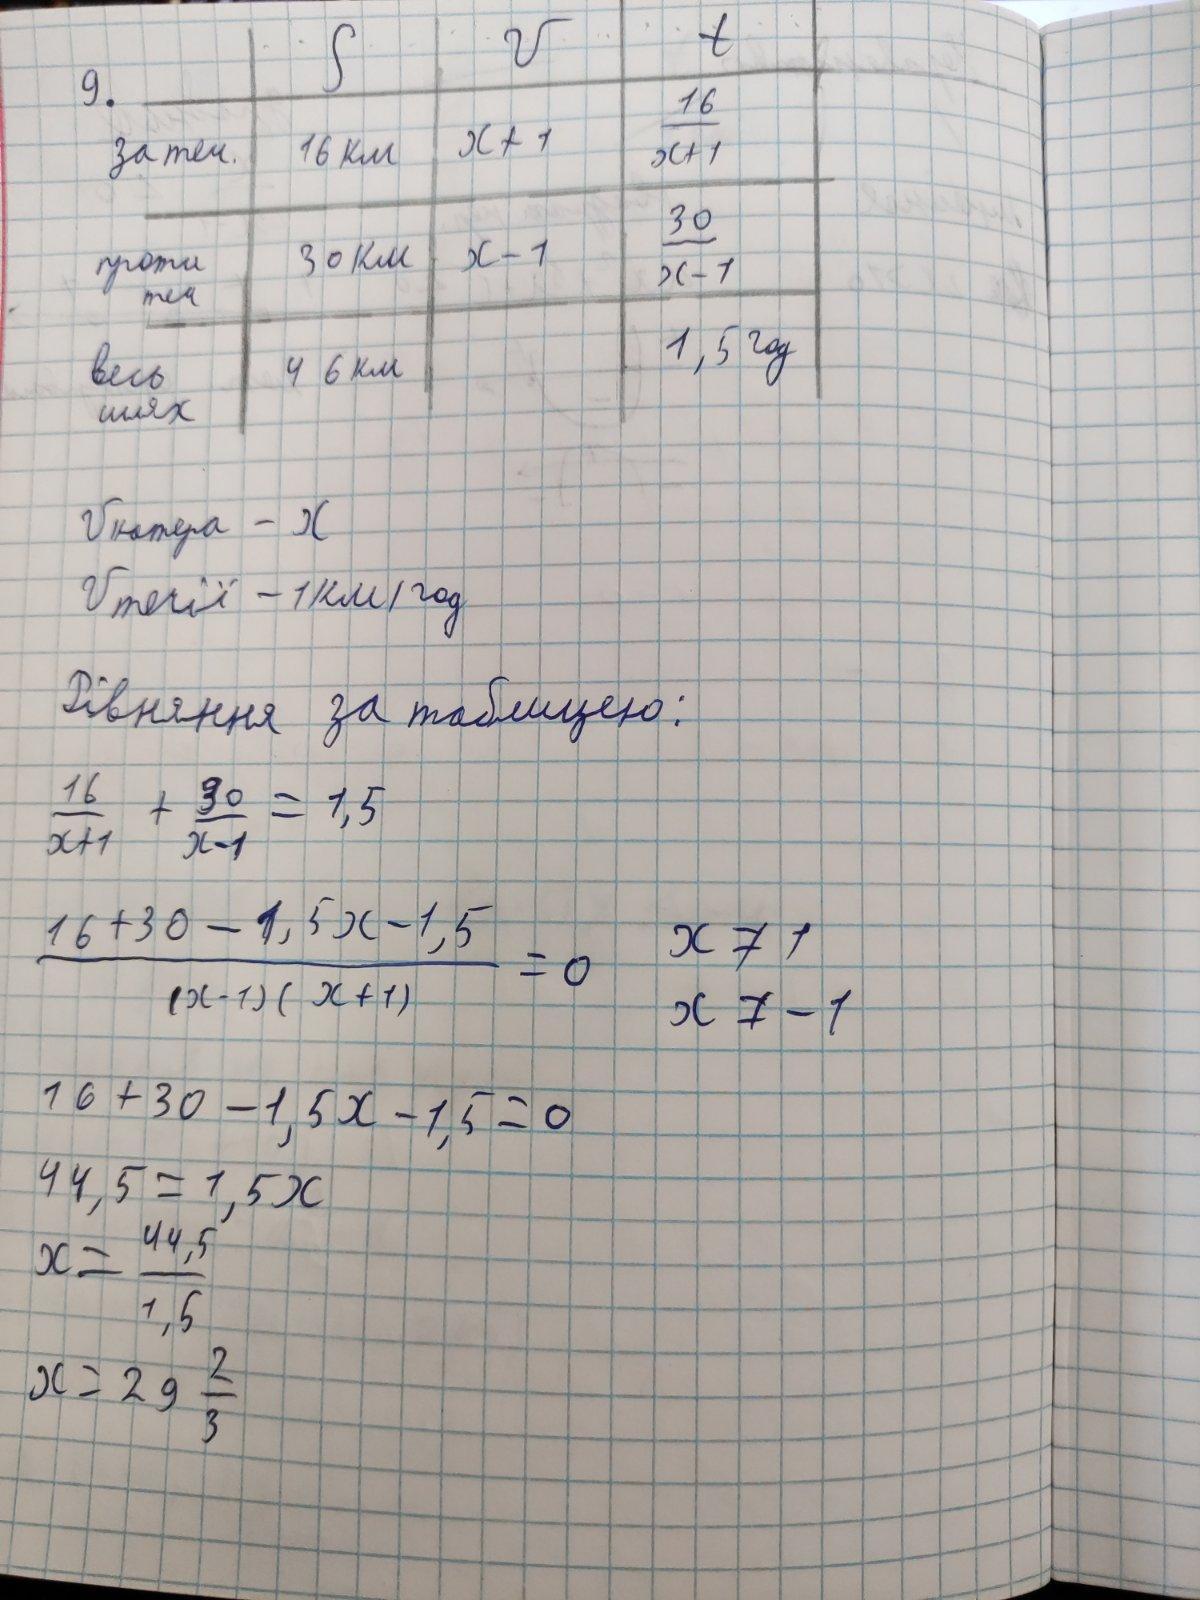 9. S V t
за теч. 16 км x+1 16/(x+1)
проти теч 30 км x-1 30/(x-1)
весь шлях 46 км 1,5 год
Vкатера - x
Vтечії - 1 км/год
Рівняння за таблицею:
16/(x+1) + 30/(x-1) = 1,5
(16+30-1,5x-1,5)/((x-1)(x+1)) = 0 x ≠ 1
x ≠ -1
16+30-1,5x-1,5=0
44,5=1,5x
x= 44,5/1,5
x= 29 2/3